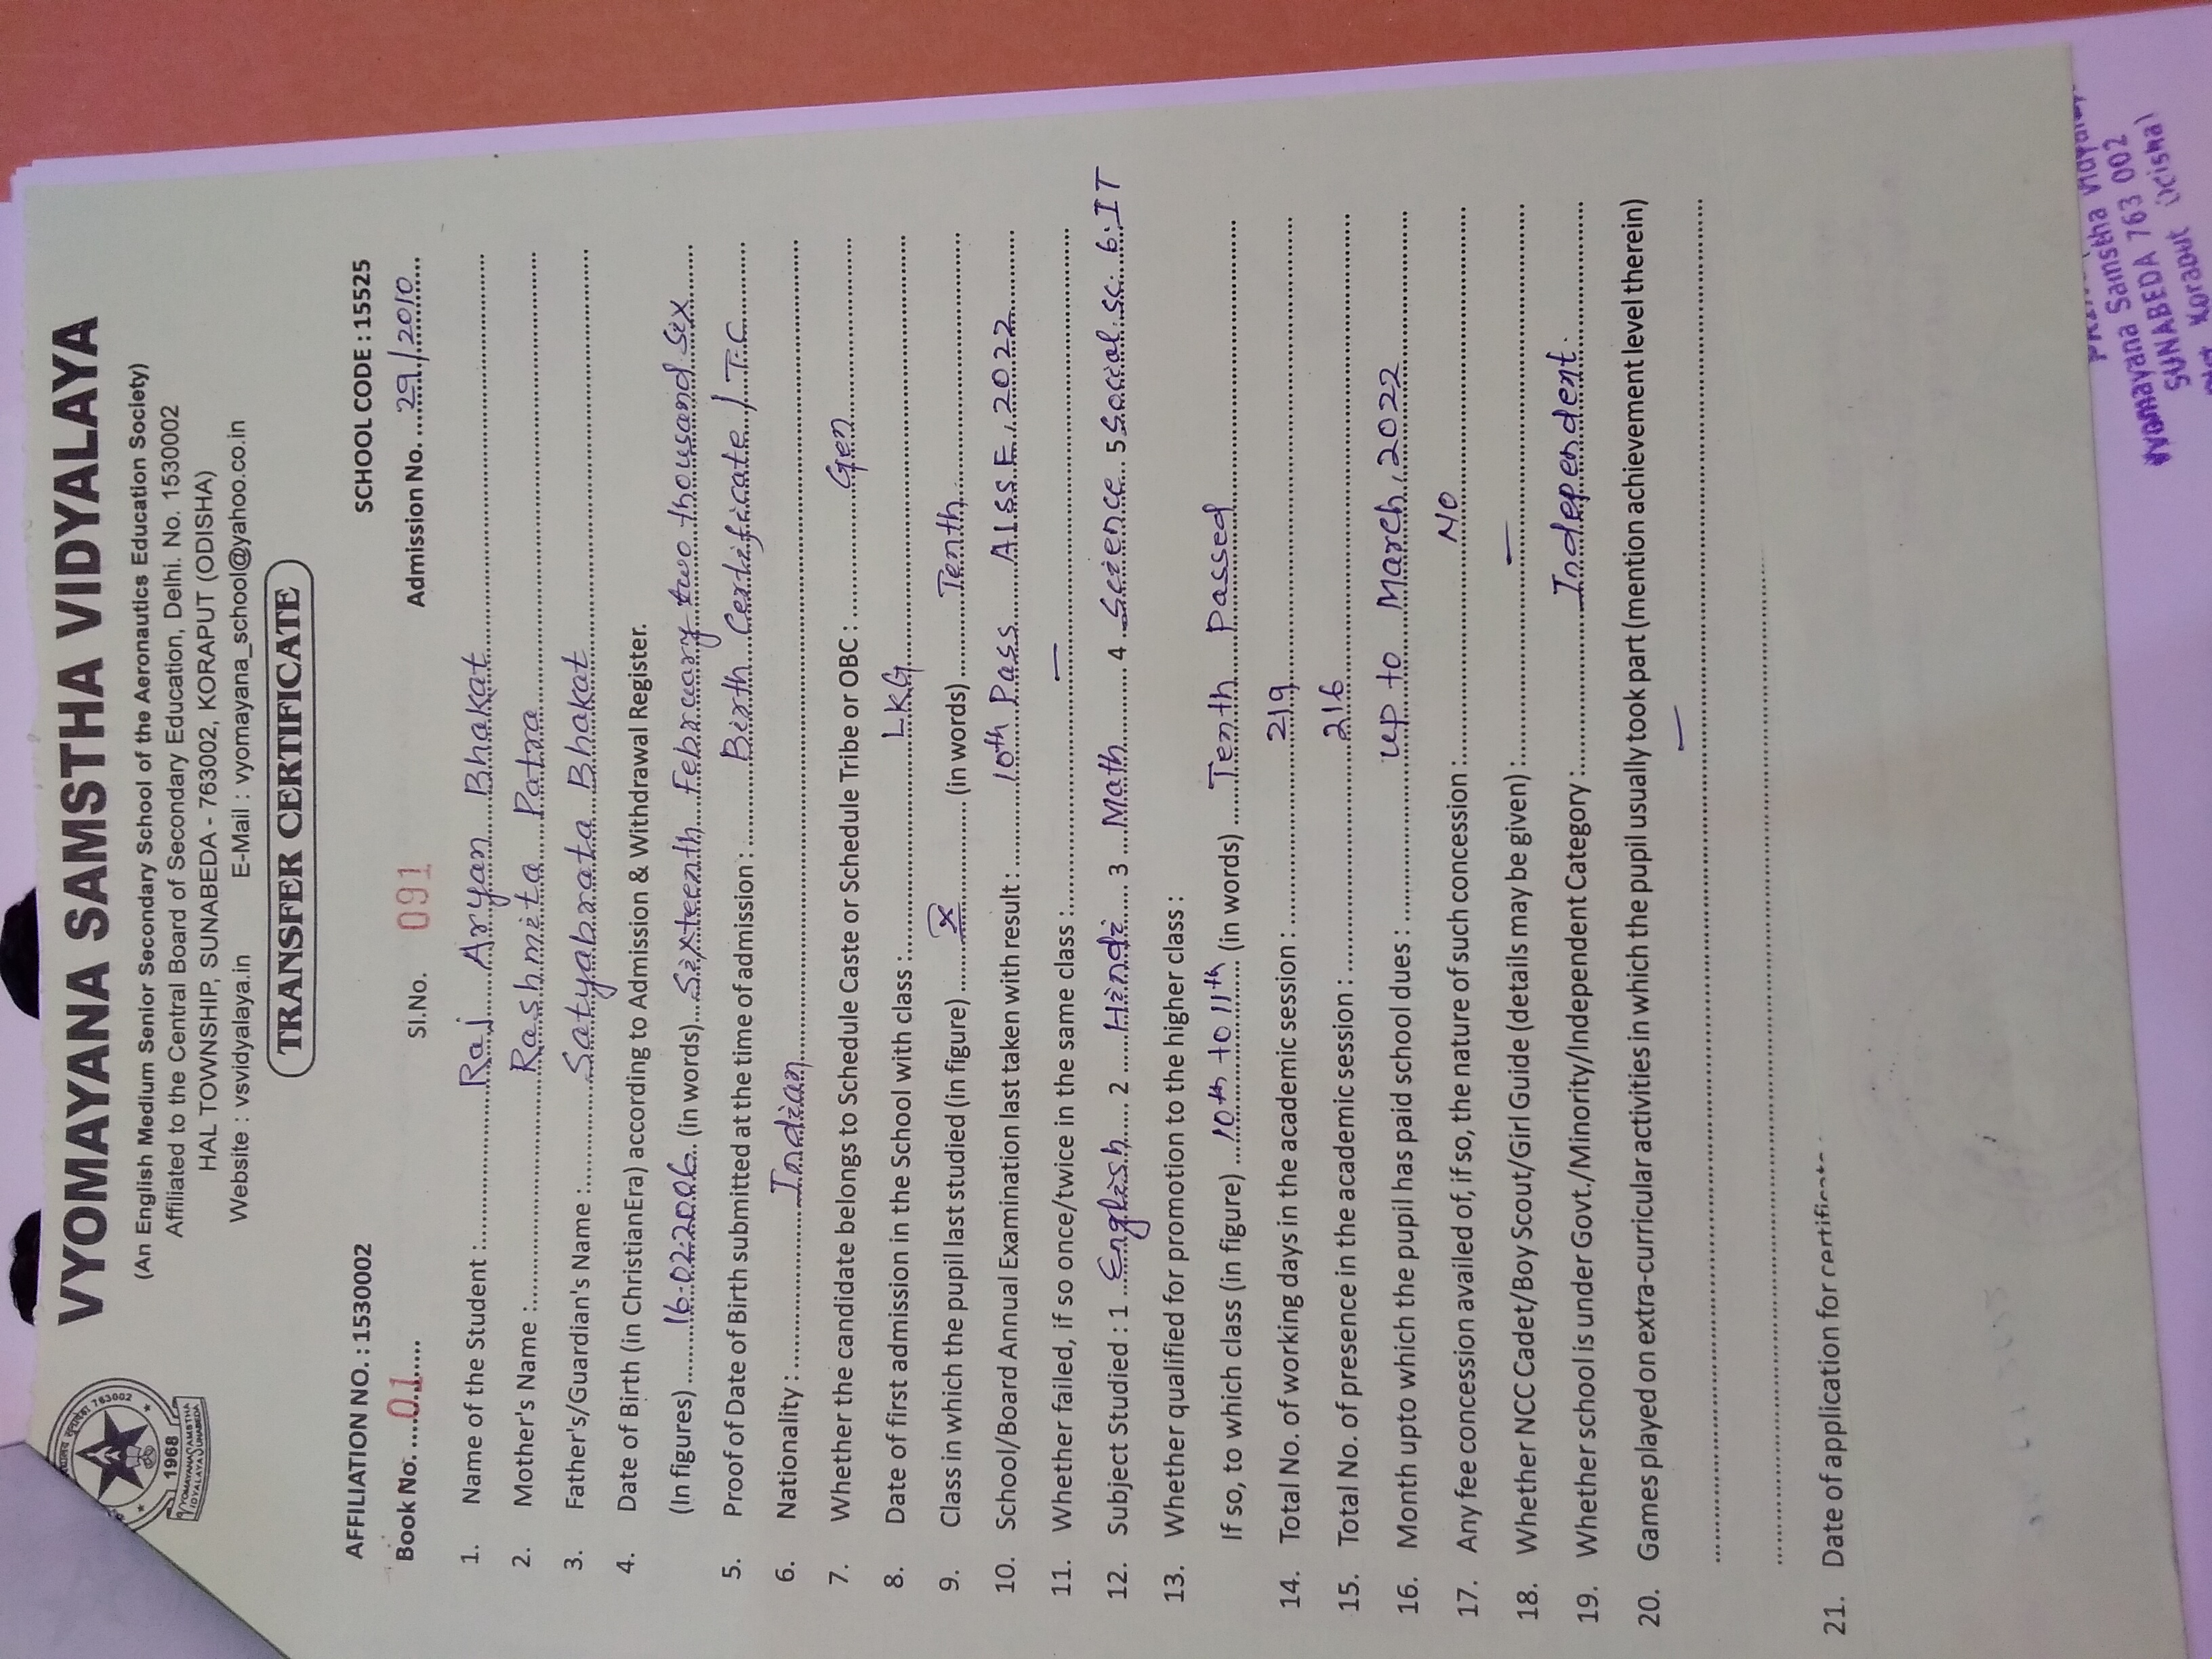 VYOMAYANA SAMSTHA VIDYALAYA
(An English Medium Senior Secondary School of the Aeronautics Education Society)
Affiliated to the Central Board of Secondary Education, Delhi. No. 1530002
HAL TOWNSHIP, SUNABEDA - 763002, KORAPUT (ODISHA)
Website : vsvidyalaya.in E-Mail : vyomayana_school@yahoo.co.in
TRANSFER CERTIFICATE
763002
1968
VYOMAYANA SAMSTHA
VIDYALAYA SUNABEDA
AFFILIATION NO. : 1530002 SCHOOL CODE : 15525
Book No. 01 Sl.No. 091 Admission No. 29/2010
1. Name of the Student : Raj Aryan Bhakat
2. Mother's Name : Rashmita Patra
3. Father's/Guardian's Name : Satyabrata Bhakat
4. Date of Birth (in ChristianEra) according to Admission & Withdrawal Register.
(In figures) 16-02-2006 (in words) Sixteenth February two thousand Six
5. Proof of Date of Birth submitted at the time of admission : Birth Certificate / T.C
6. Nationality : Indian
7. Whether the candidate belongs to Schedule Caste or Schedule Tribe or OBC : Gen
8. Date of first admission in the School with class : LKG
9. Class in which the pupil last studied (in figure) X (in words) Tenth
10. School/Board Annual Examination last taken with result : 10th Pass AISSE, 2022
11. Whether failed, if so once/twice in the same class : —
12. Subject Studied : 1 English 2 Hindi 3 Math 4 Science 5 Social.Sc. 6. IT
13. Whether qualified for promotion to the higher class :
If so, to which class (in figure) 10th to 11th (in words) Tenth Passed
14. Total No. of working days in the academic session : 219
15. Total No. of presence in the academic session : 216
16. Month upto which the pupil has paid school dues : up to March, 2022
17. Any fee concession availed of, if so, the nature of such concession : NO
18. Whether NCC Cadet/Boy Scout/Girl Guide (details may be given) : —
19. Whether school is under Govt./Minority/Independent Category : Independent.
20. Games played on extra-curricular activities in which the pupil usually took part (mention achievement level therein)
—
21. Date of application for
Vyomayana Samstha
SUNABEDA 763 002
Koraput